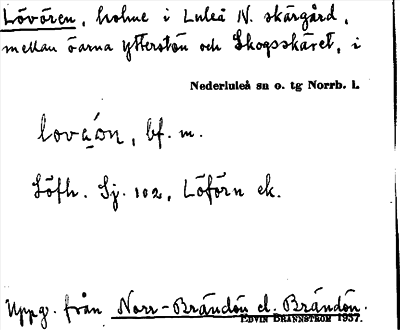 Lövören, holme i Luleå N. skärgård,
mellan öarna Ytterstön och Skogsskäret, i
Nederluleå sn o. tg Norrb. l.
lovạ́ọn, bf. m.
Söfh. Sj. 102, Löförn ek.
Uppg. från Norr-Brändön el. Brändön.
EDVIN BRÄNNSTRÖM 1937.